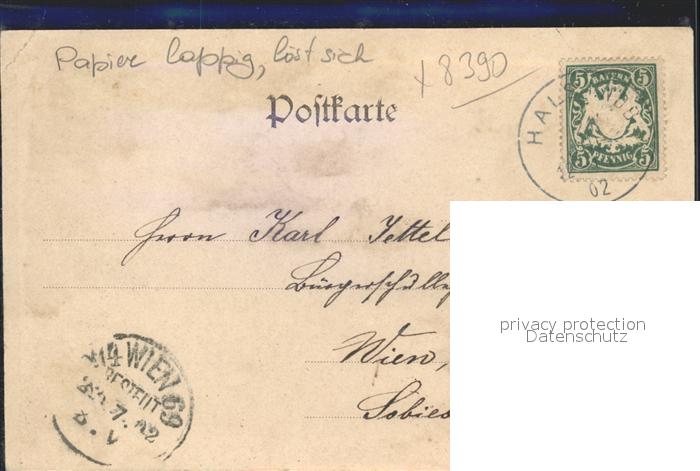 Papier lappig, löst sich
x 8390
Postkarte
5 BAYERN 5
5 PFENNIG 5
HAL
02
Herrn Karl Jettel
Bürgerschulle
Wien,
Sobies
14 WIEN 69
BESTELLT
7. 02
privacy protection
Datenschutz